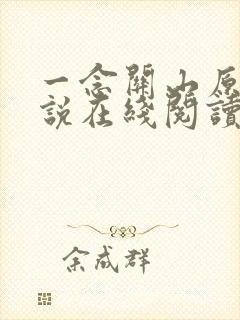 一念關山原
說在綫閱讀
余成群